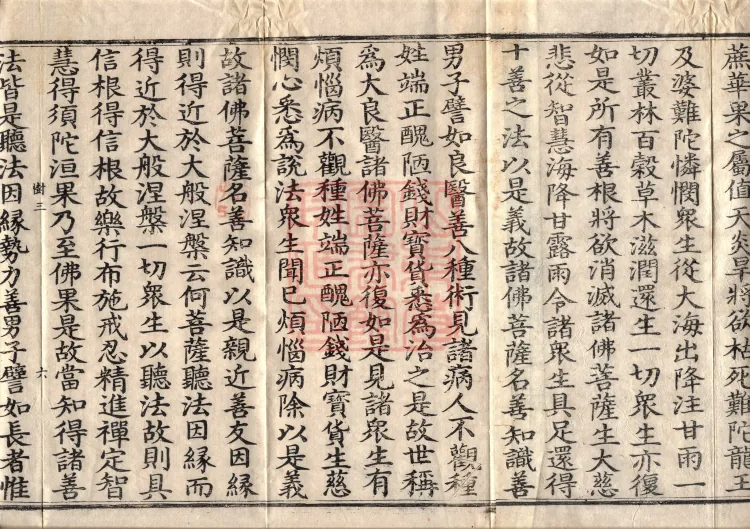 蕪華果之屬值天炎旱將欲枯死難陀龍王
及婆難陀憐憫衆生從大海出降注甘雨一
切叢林百穀草木滋潤還生一切衆生亦復
如是所有善根將欲消滅諸佛菩薩生大慈
悲從智慧海降甘露雨令諸衆生具足還得
十善之法以是義故諸佛菩薩名善知識善
男子譬如良醫善八種術見諸病人不觀種
姓端正醜陋錢財寶貨悉爲治之是故世稱
爲大良醫諸佛菩薩亦復如是見諸衆生有
煩惱病不觀種姓端正醜陋錢財寶貨生慈
憫心悉爲說法衆生聞已煩惱病除以是義
故諸佛菩薩名善知識以是親近善友因緣
則得近於大般涅槃云何菩薩聽法因緣而
得近於大般涅槃一切衆生以聽法故則具
信根得信根故樂行布施戒忍精進禪定智
慧得須陀洹果乃至佛果是故當知得諸善
三 六
法皆是聽法因緣勢力善男子譬如長者惟